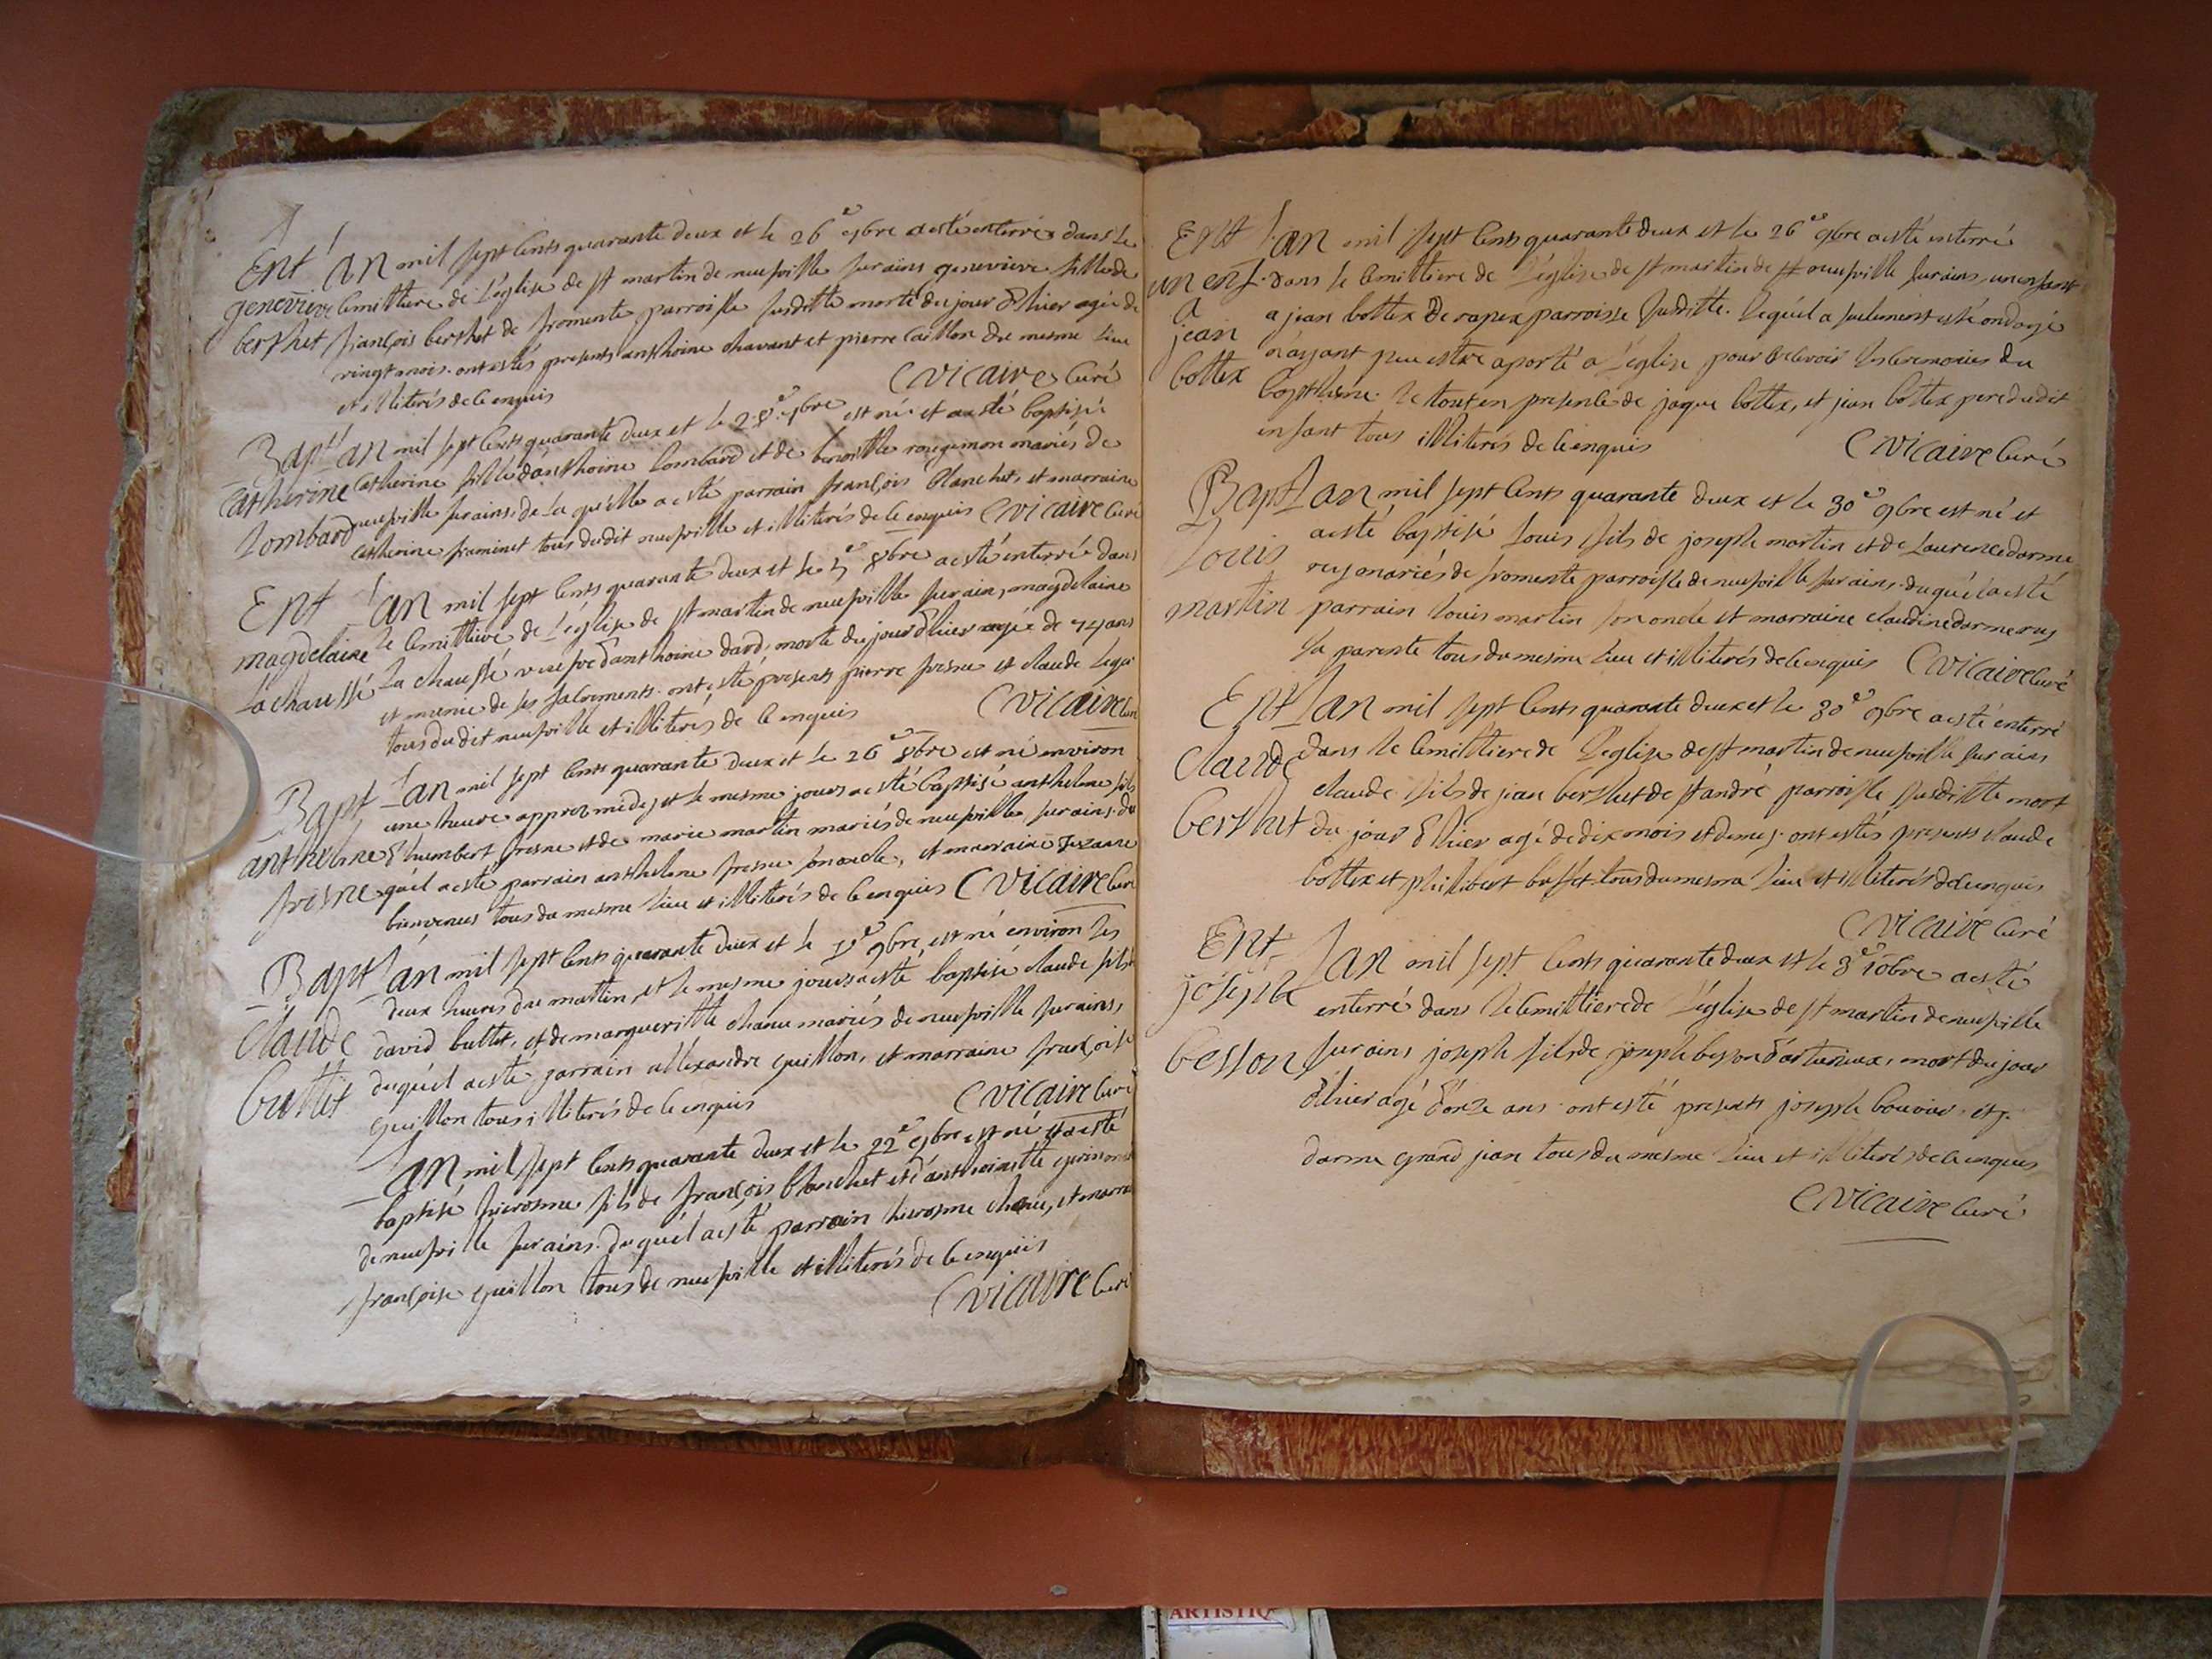 Ent L'an mil sept cents quarante deux et le 26e 7bre a esté enterrée dans le
genevieve cemittiere de l'église de st martin de neufville sur ains genevieve fille de
berthet françois berthet de fromente parroisse susditte morte du jour d'hier agée de
vingt mois. ont estés presents anthoine chavant et pierre caillon du mesme lieu
et illiterés de ce enquis
C vicaire curé
Bapt L'an mil sept cents quarante deux et le 28e 7bre est née et a esté baptisée
catherine catherine fille d'anthoine lombard et de benoitte rougemon mariés de
lombard neufville sur ains. de la quelle a esté parrain françois blanchet, et marraine
catherine framinet tous dudit neufville et illiterés de ce enquis C vicaire curé
Ent L'an mil sept cents quarante deux et le 5e 8bre a esté enterrée dans
magdelaine le cemittiere de l'église de st martin de neufville sur ain, magdelaine
La chaussé La chaussé veufve d'anthoine dard, morte du jour d'hier agée de 74 ans
et munie de ses sacrements. ont esté presents pierre fresne et claude
tous dudit neufville et illiterés de ce enquis
C vicaire curé
Bapt L'an mil sept cents quarante deux et le 26e 8bre est né environ
une heure appres midy, et le mesme jour a esté baptisé anthelme fils
anthelme d'humbert fresne et de marie martin mariés de neufville sur ains. du
fresne quel a esté parrain anthelme fresne son oncle, et marraine suzanne
bienvenus tous du mesme lieu et illiterés de ce enquis C vicaire curé
Bapt L'an mil sept cents quarante deux et le 9bre est né environ les
deux heures du mattin, et le mesme jour a esté baptisé claude fils
claude david buttet, et de margueritte chanu mariés de neufville sur ains,
buttet duquel a esté parrain allexandre guillon, et marraine françoise
guillon tous illiterés de ce enquis
C vicaire curé
L'an mil sept cents quarante deux et le 22e 9bre est né et a esté
baptisé hierosme fils de françois blanchet et d'anthoinette
de neufville sur ains. duquel a esté parrain hierosme chanu, et marra
françoise guillon tous de neufville et illiterés de ce enquis
C vicaire curé
Ent L'an mil sept cents quarante deux et le 26e 9bre a esté enterré
un enf. dans le cemittiere de l'église de st martin de neufville sur ains, un enfant
a jean a jean bottex de rapex parroisse susditte. lequel a seulement esté ondoyé
n'ayant peu estre aporté a l'église pour recevoir les ceremonies du
bottex baptheme. le tout en presence de jaque bottex, et jean bottex pere dudit
enfant tous illiterés de ce enquis
C vicaire curé
Bapt L'an mil sept cents quarante deux et le 30e 9bre est né et
a esté baptisé Louis fils de joseph martin et de Laurence darme
Louis rey mariés de fromente parroisse de neufville sur ains. duquel a esté
martin parrain louis martin son oncle et marraine claudine darmerey
sa parente tous du mesme lieu et illiterés de ce enquis C vicaire curé
Ent L'an mil sept cents quarante deux et le 30e 9bre a esté enterré
claude dans le cemittiere de l'église de st martin de neufville sur ains
claude fils de jean berthet de st andré parroisse susditte mort
berthet du jour d'hier agé de dix mois et demy. ont estés presents claude
bottex et philibert buffet tous du mesme lieu et illiterés de ce enquis
C vicaire curé
Ent L'an mil sept cents quarante deux et le 3e 10bre a esté
joseph enterré dans le cemittiere de l'église de st martin de neufville
besson sur ains joseph fils de joseph besson d'arturieux, mort du jour
d'hier agé d'onze ans. ont esté presents joseph bouvier, et
darme grand jean tous du mesme lieu et illiterés de ce enquis
C vicaire curé
ARTISTIQ